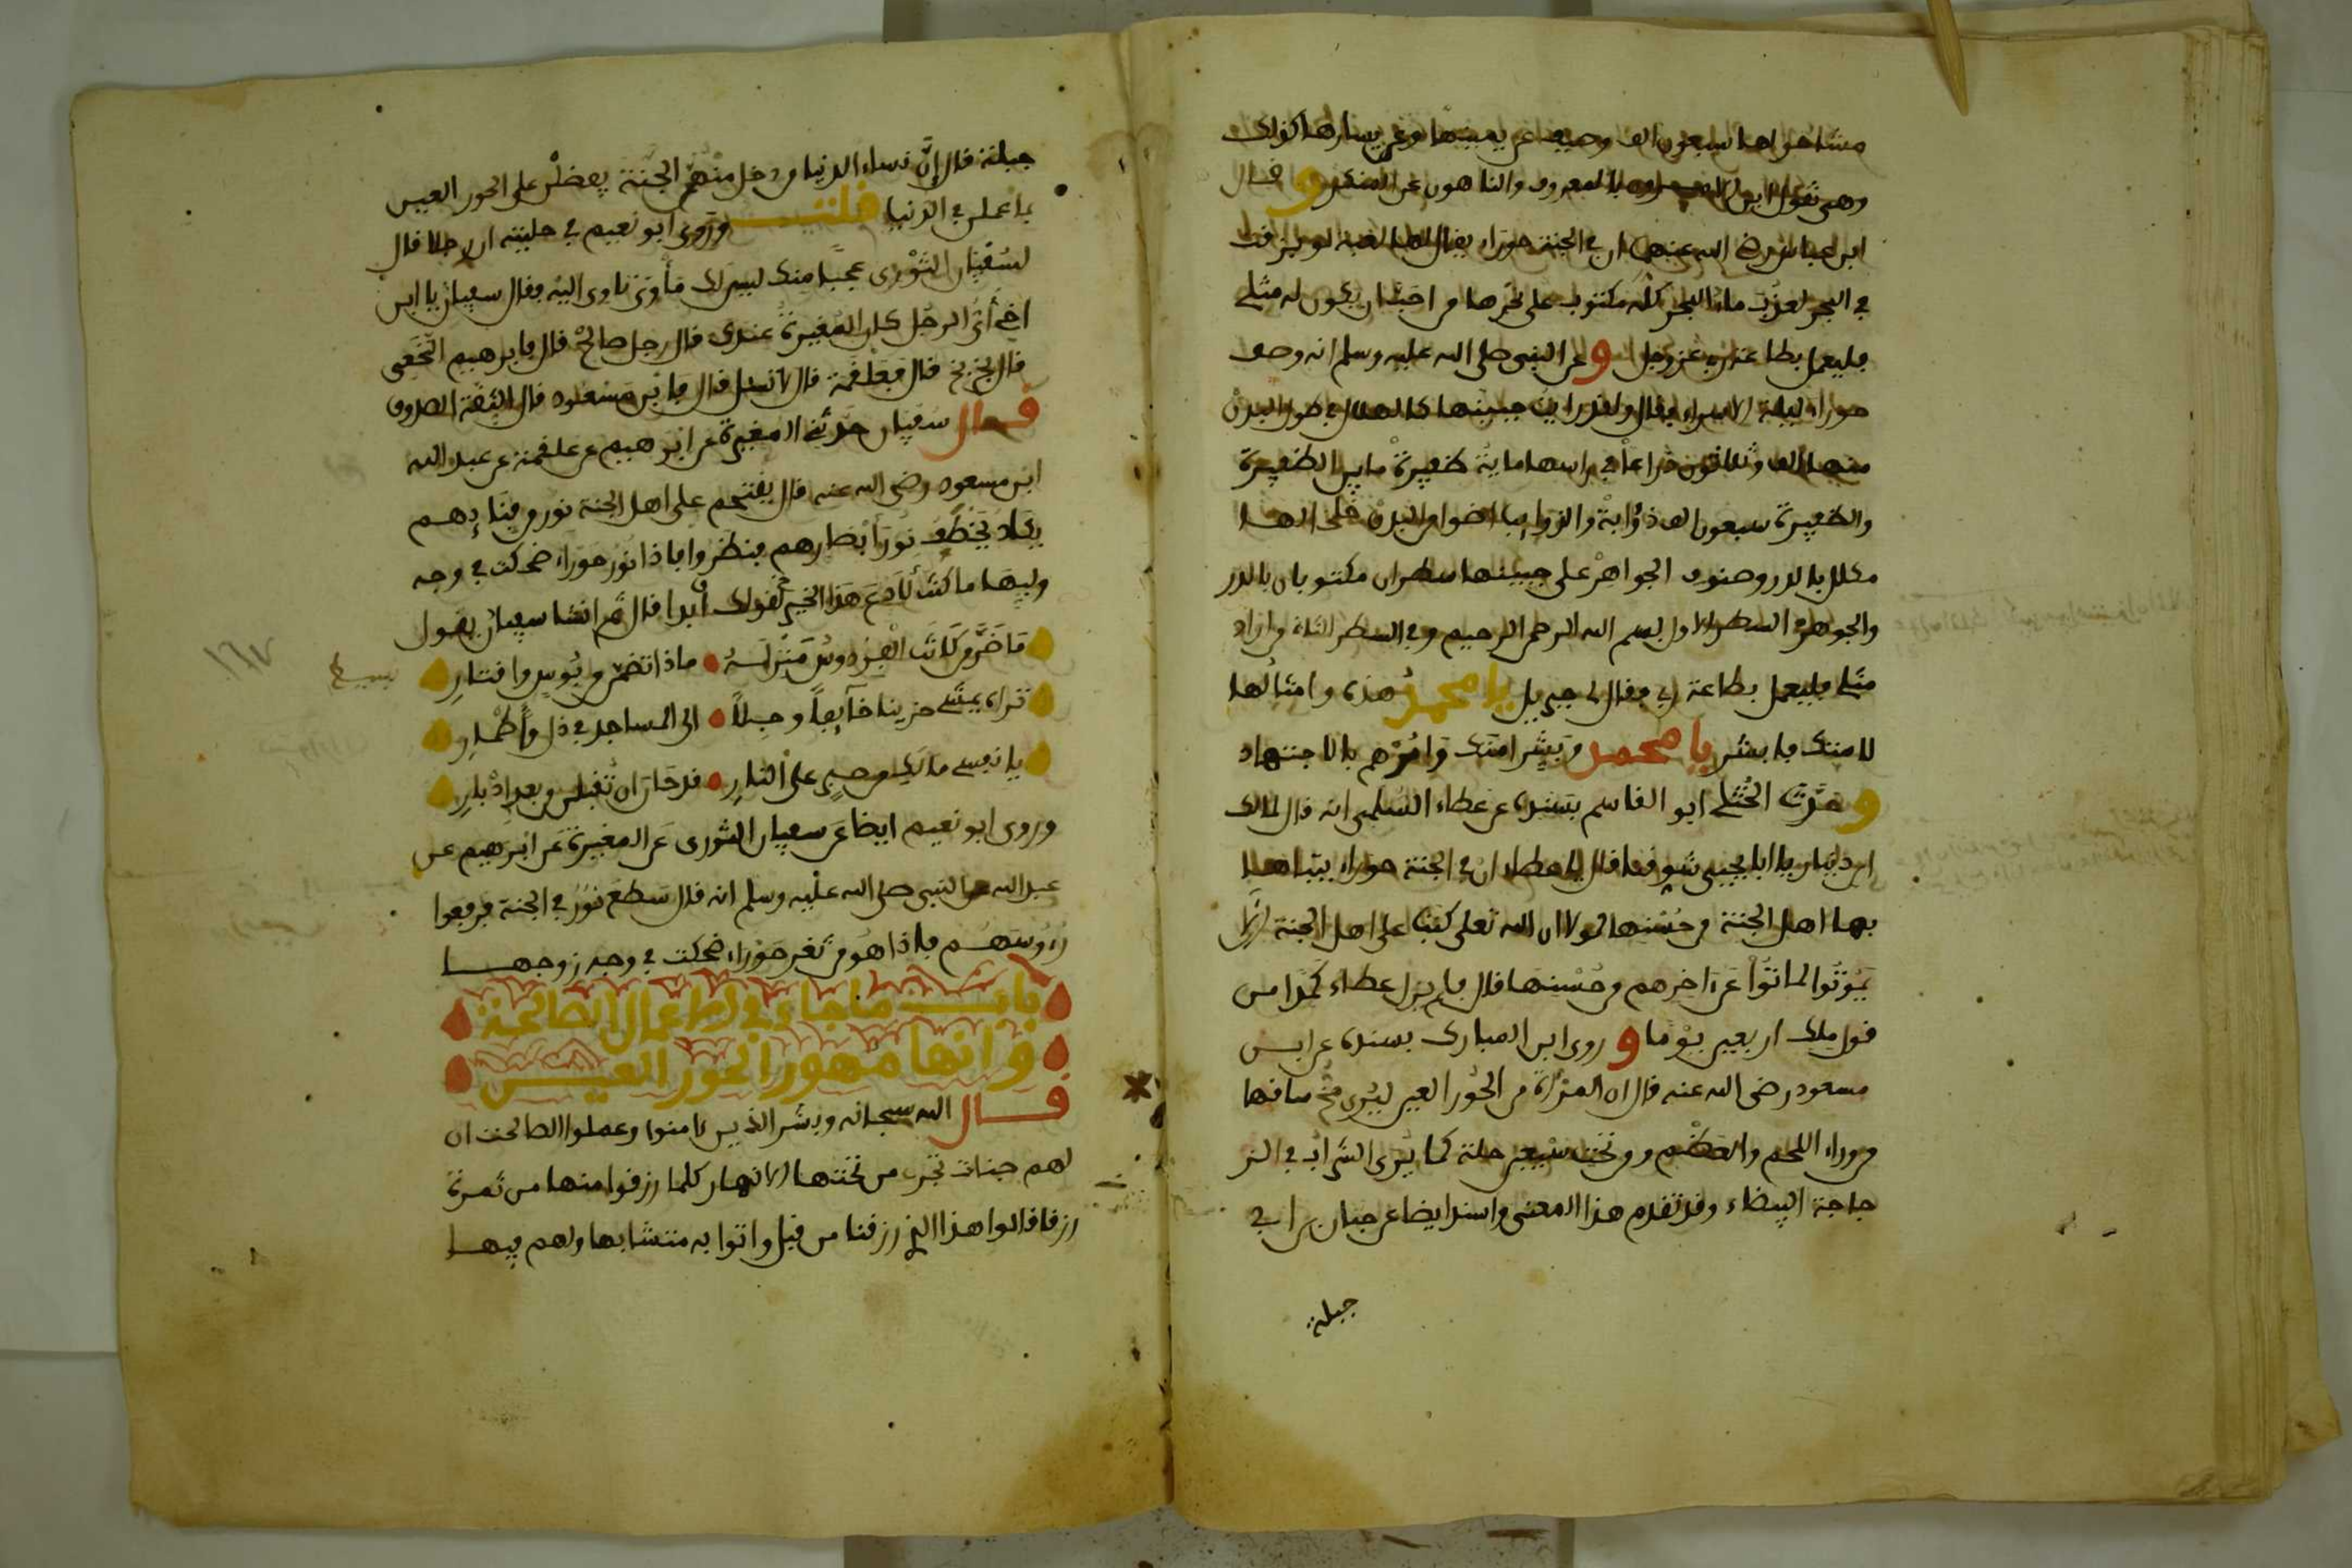 مشاهواها سبعون الف وصيف عن يمينها وعن يسارها كذلك
وهي تقول اين الامرون بالمعروف والناهون عن المنكر وقال
ابن عباس رضي الله عنهما ان في الجنة حوراء يقال لها لعبة لو بزقت
في البحر لعذب ماء البحر كله مكتوب على نحرها من احب ان يكون له مثلي
فليعمل بطاعة ربه عز وجل وعن النبي صلى الله عليه وسلم انه وصف
حوراء ليلة الاسراء فقال ولقد رايت جبينها كالهلال في طول البدن
منها الف وثلاثون ذراعا في راسها ماية ضفيرة ما بين الضفيرة
والضفيرة سبعون الف ذؤابة والذوايب اضوا من البدر خلخالها
مكلل بالدر وصنوف الجواهر على جبينها سطران مكتوبان بالدر
والجوهر في السطر الاول بسم الله الرحمن الرحيم وفي السطر الثاني من اراد
مثلي فليعمل بطاعة ربي فقال لي جبريل يا محمد هذه وامثالها
لامتك فابشر يا محمد وبشر امتك وامرهم بالاجتهاد
وحدث الختلي ابو القاسم بسنده عن عطاء السلمي انه قال لمالك
ابن دينار يا ابا يحيى شوقنا قال يا عطاء ان في الجنة حوراء يتباها
بها اهل الجنة من حسنها لولا ان الله تعلى كتب على اهل الجنة ان لا
يموتوا لماتوا عن اخرهم من حسنها قال فلم يزل عطاء كمدا من
قول ملك اربعين يوما وروى ابن المبارك بسنده عن ابن
مسعود رضي الله عنه قال ان المرأة من الحور العين ليرى مخ ساقها
من وراء اللحم والعظم ومن تحت سبعين حلة كما يرى الشراب في الز
جاجة البيضاء وقد تقدم هذا المعنى واسند ايضا عن حبان بن ابي
جبلة
جبلة قال ان نساء الدنيا من دخل منهن الجنة يفضلن على الحور العين
بما عملن في الدنيا قلت وروى ابو نعيم في حليته ان رجلا قال
لسفيان الثوري عجبا منك ليس لك مأوى تاوي اليه فقال سفيان يا ابن
اخي أي الرجل كان المغيرة عندك قال رجل صالح قال فابرهيم النخعي
قال بخ بخ قال فعلقمة قال لا تسل قال فابن مسعود قال الثقة الصدوق
فقال سفيان حدثني المغيرة عن ابرهيم عن علقمة عن عبد الله
ابن مسعود رضي الله عنه قال يفتحم على اهل الجنة نور من يناديهم
يكاد يخطف نور أبصارهم فينظروا فاذا نور حوراء ضحكت في وجه
وليها ما كنت لادع هذا الخير لقولك ابدا قال ثم انشا سفيان يقول
ما ضر من كانت الفردوس منزلة ماذا تضمن من بوس واقتار
تراه يمشي حزينا خايفا وجلا الى المساجد في ذل وأطمار
يا نفس مالك من صبر على النار قد حان ان تقبلي من بعد ادبار
وروى ابو نعيم ايضا عن سفيان الثوري عن المغيرة عن ابرهيم عن
عبد الله عن النبي صلى الله عليه وسلم انه قال سطع نور في الجنة فرفعوا
رءوسهم فاذا هو من ثغر حوراء ضحكت في وجه زوجها
باب ما جاء في ان الاعمال الصالحة
وانها مهور الحور العين
قال الله سبحانه وبشر الذين ءامنوا وعملوا الصالحت ان
لهم جنات تجري من تحتها الانهار كلما رزقوا منها من ثمرة
رزقا قالوا هذا الذي رزقنا من قبل واتوا به متشابها ولهم فيها
١٦٧